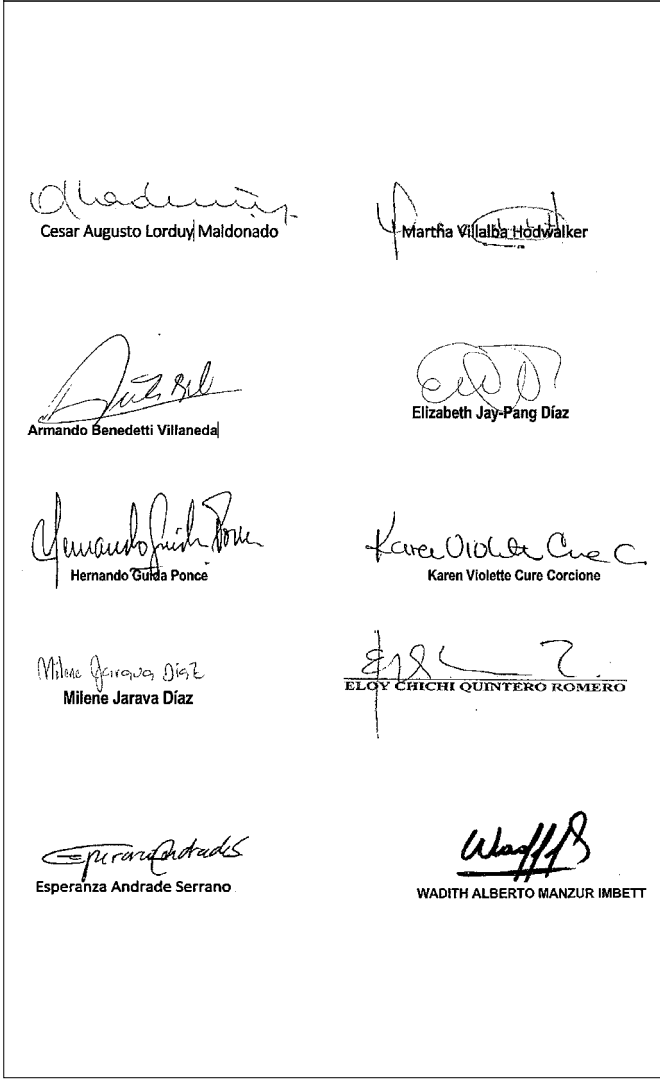 Cesar Augusto Lorduy Maldonado
Martha Villalba Hodwalker
Armando Benedetti Villaneda
Elizabeth Jay-Pang Díaz
Hernando Guida Ponce
Hernando Guida Ponce
Karen Violette Cure C
Karen Violette Cure Corcione
Milene Jarava Díaz
Milene Jarava Díaz
ELOY CHICHI QUINTERO ROMERO
Esperanza Andrade S
Esperanza Andrade Serrano
WADITH ALBERTO MANZUR IMBETT